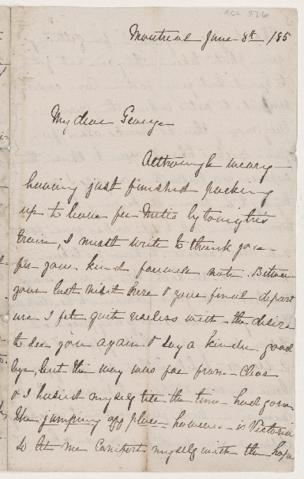 Montreal June 8th /85
My dear George
Although weary
having just finished packing
up to leave for Metis by tonight's
train, I must write to thank you
for your kind farewell note. Between
your last visit here & your final depart
ure I felt quite restless with the desire
to see you again & say a kinder good
bye, but the way was far from clear
& I the time had gone
The jumping off place however is Victoria
so let me comfort myself with the hope